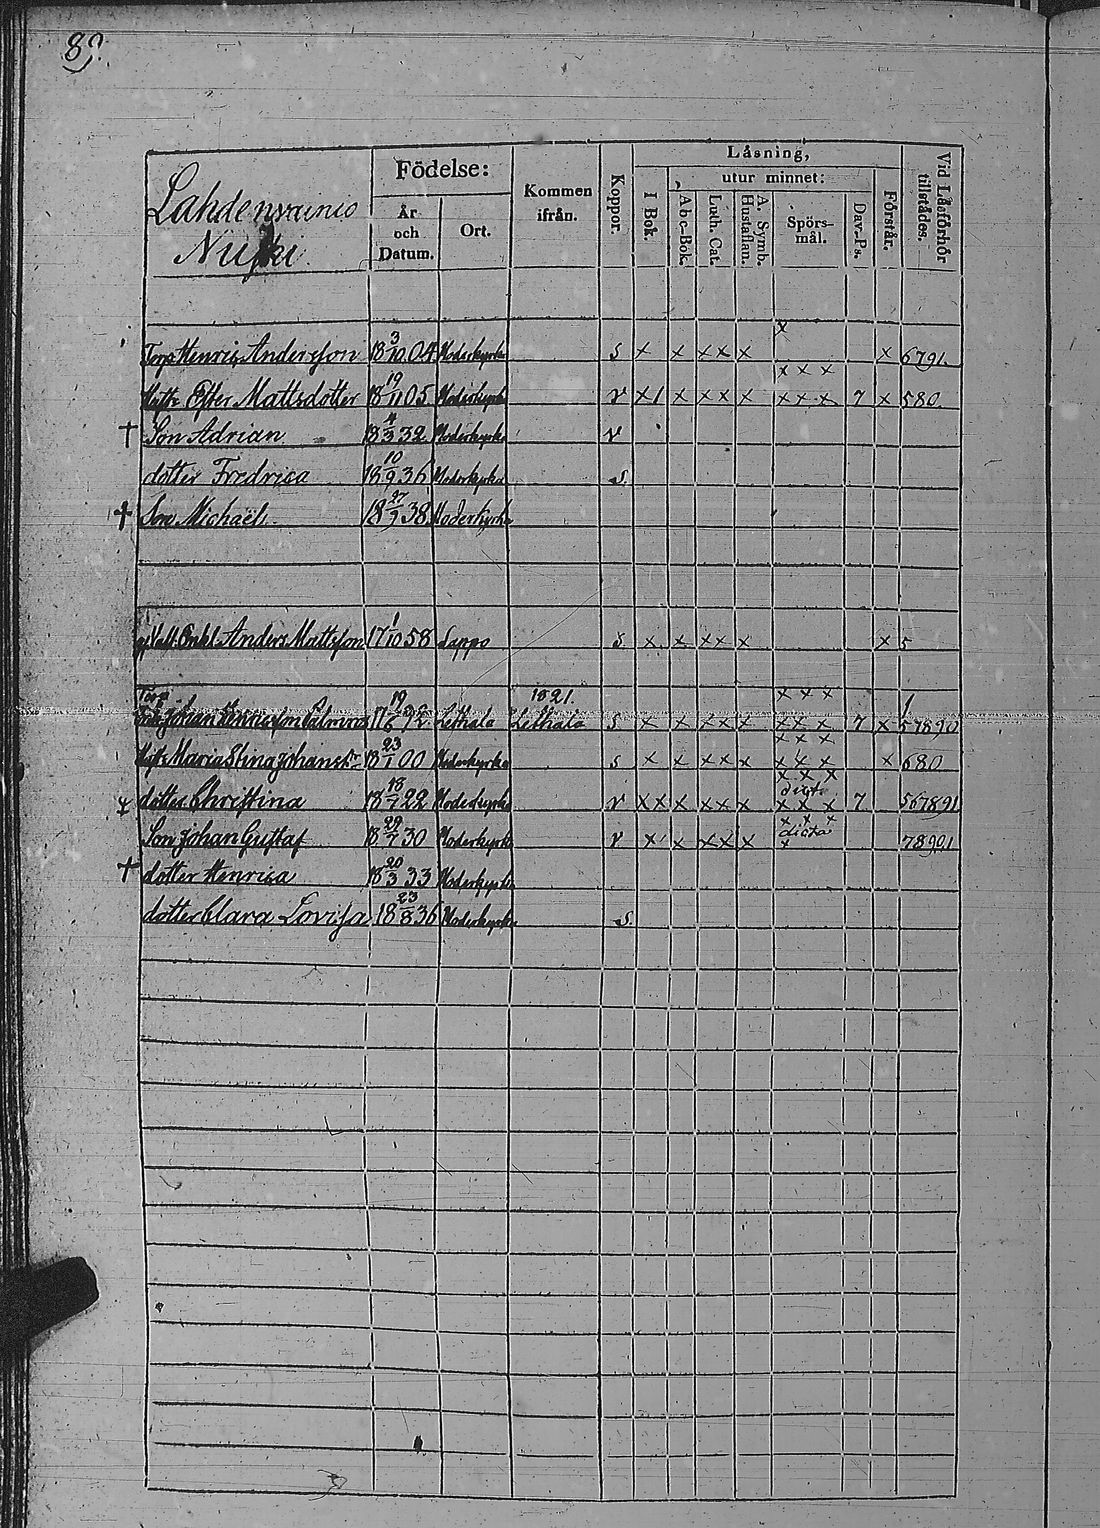 89.
Lahdenvainio
Födelse:
År och Datum.
Ort.
Kommen ifrån.
Koppor.
Läsning,
I Bok.
utur minnet:
Abc-Bok.
Luth. Cat.
A. Symb. Hustaflan.
Spörsmål.
Dav. Ps.
Förstår.
Vid Läsförhör tillstädes.
x
Torp Henric Andersson 18 3/10 04 Moderkyrka s x x x x x x 6791.
x x x
Hust. Ester Mattsdotter 18 19/11 05 Moderkyrka v x 1 x x x x x x x 7 x 580.
† Son Adrian 18 4/3 32 Moderkyrka v
dotter Fredrica 18 10/9 36 Moderkyrka s.
† Son Michaël 18 27/9 38 Moderkyrka
Anders Mattsson 17 1/10 58 Sappo s x x x x x x 5
Torp 1821. x x x 1
Johan Henricsson 17 19/6 92 Lethala Lethala s x x x x x x x x 7 x 57890
x x x
Hust. Maria Stina Johansdr 18 23/1 00 Moderkyrka s x x x x x x x x x 680
x x x
dicto
dotter Christina 18 18/7 22 Moderkyrka v x x x x x x x x x 7 567891
x x x
dicta
Son Johan Gustaf 18 29/7 30 Moderkyrka v x x x x x x 78901
† dotter Henrica 18 20/3 33 Moderkyrka
dotter Clara Lovisa 18 23/8 36 Moderkyrka s.